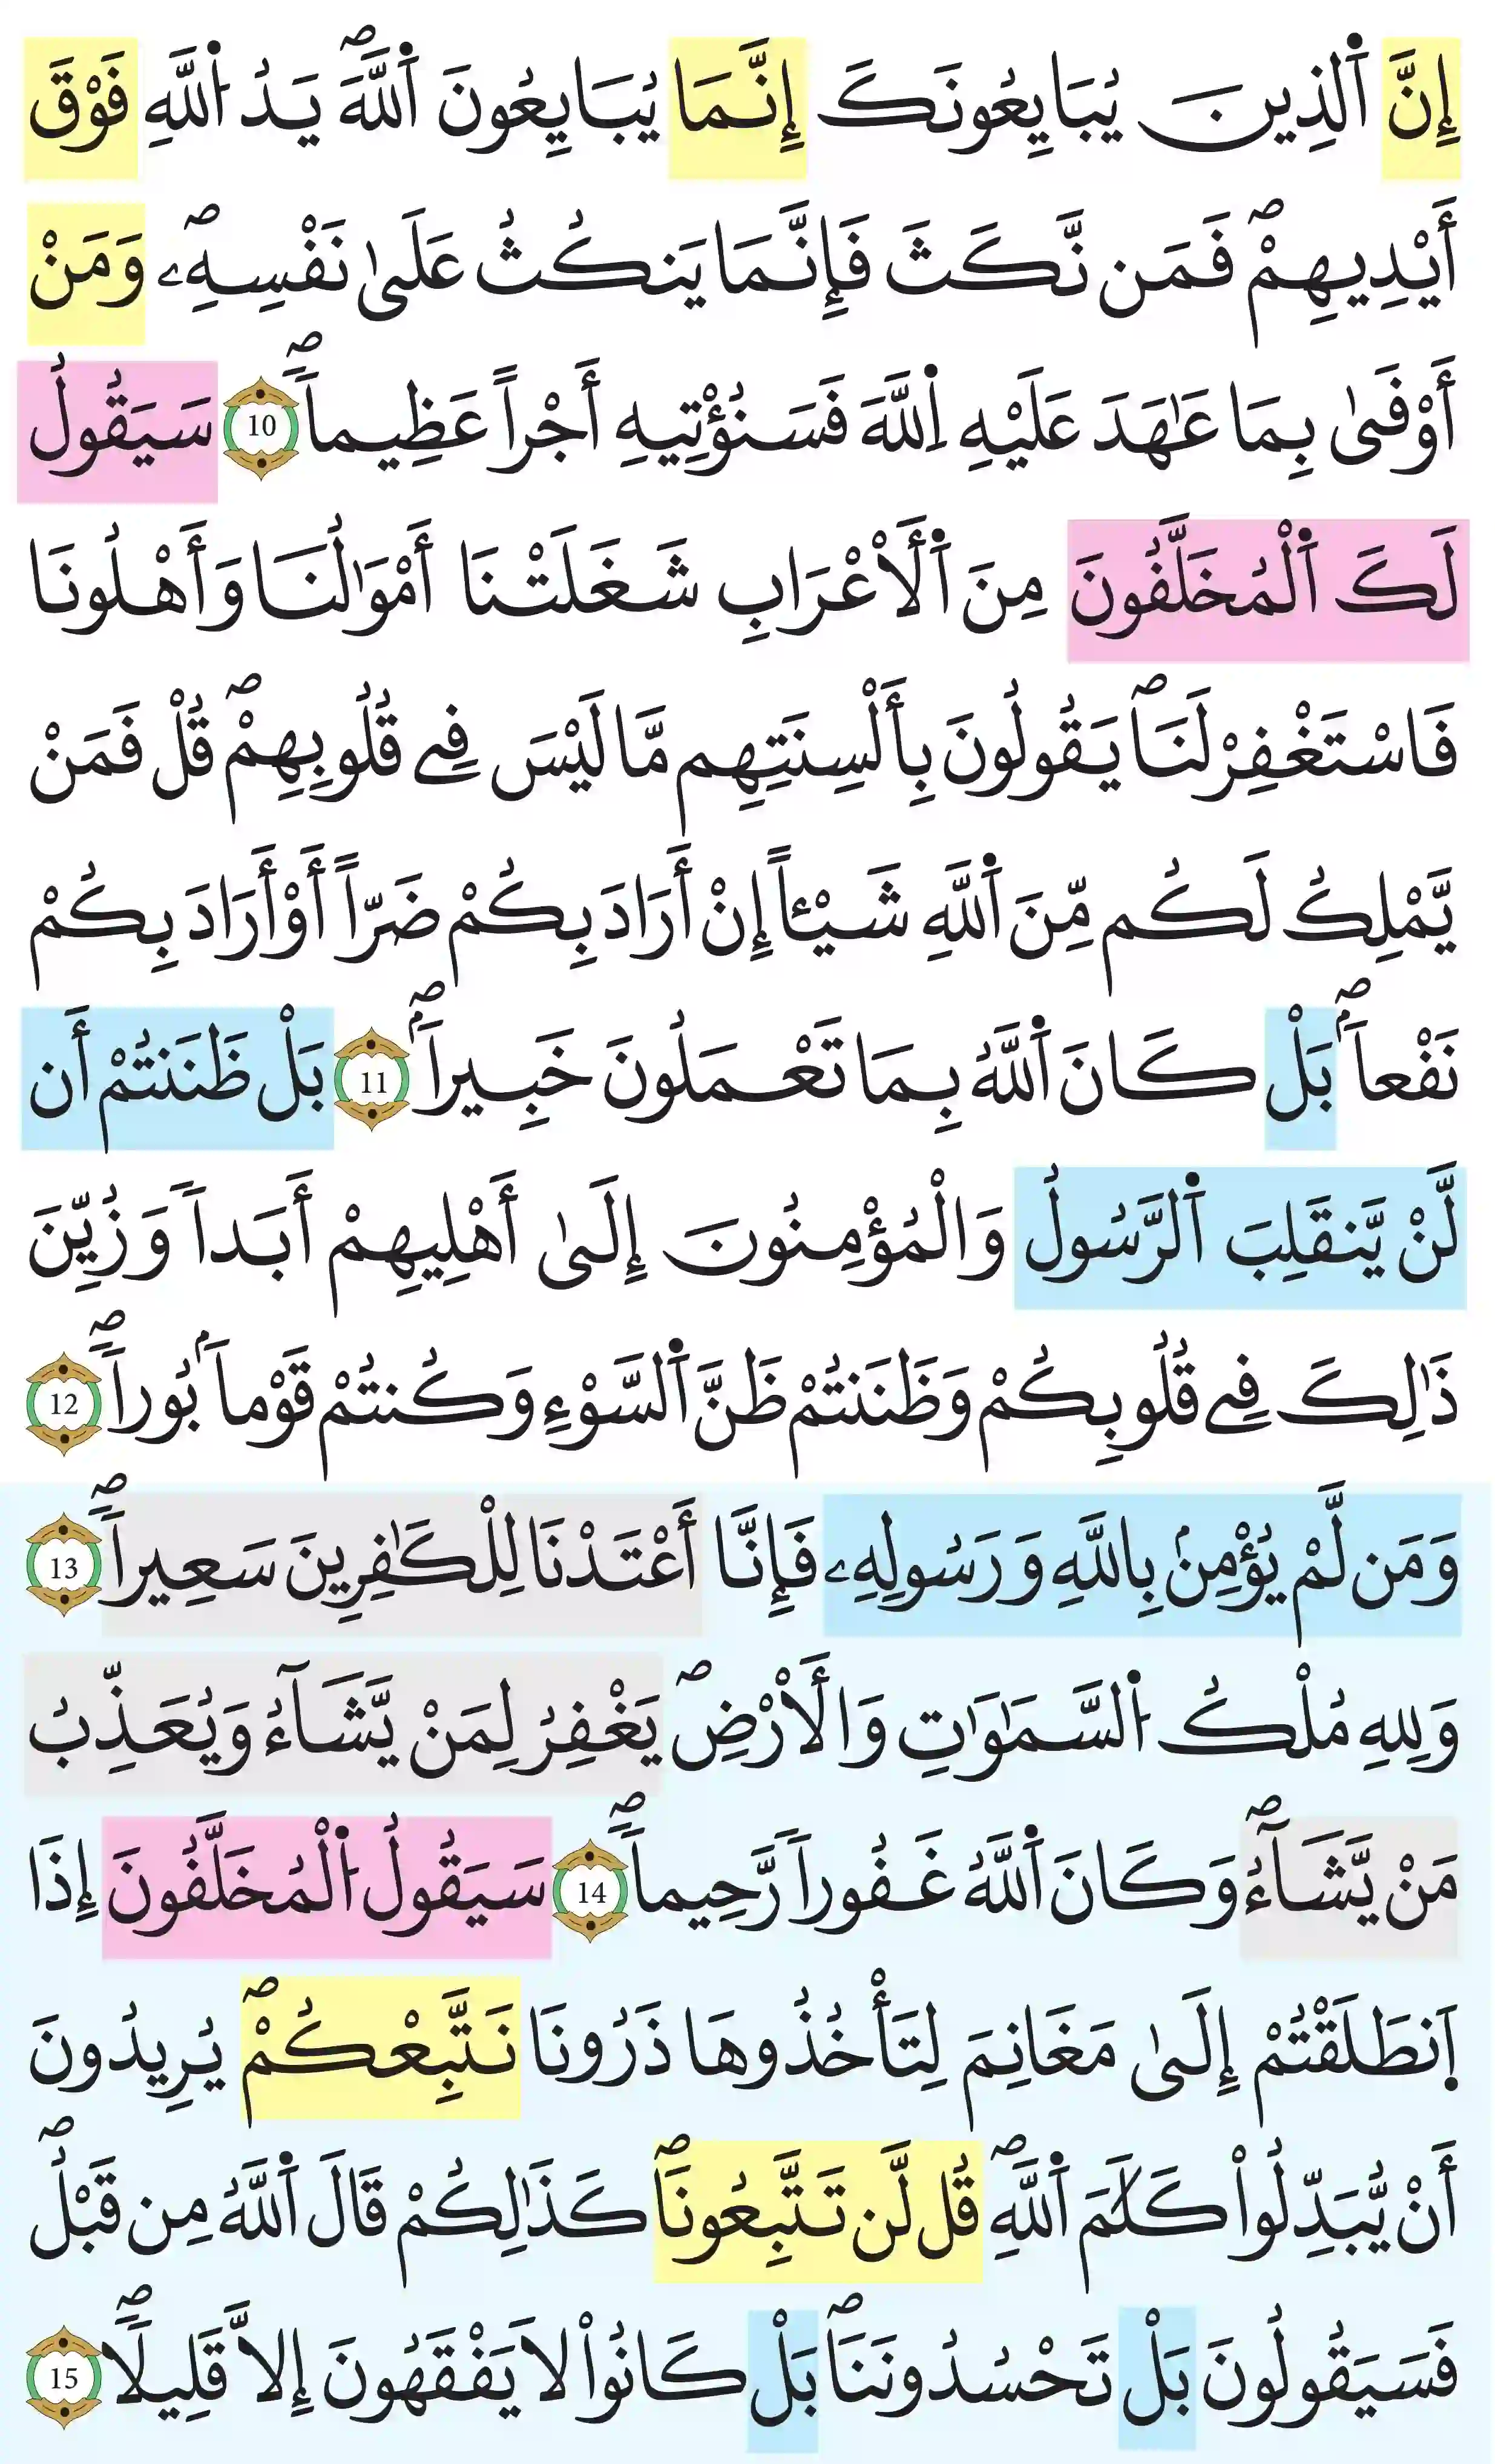 إِنَّ ٱلذِينَ يُبَايِعُونَكَ إِنَّمَا يُبَايِعُونَ ٱللَّهَۖ يَدُ اُ۬للَّهِ فَوْقَ
أَيْدِيهِمْۖ فَمَن نَّكَثَ فَإِنَّمَا يَنكُثُ عَلَىٰ نَفْسِهِۦۖ وَمَنْ
أَوْفَىٰ بِمَا عَٰهَدَ عَلَيْهِ اِ۬للَّهَ فَسَنُؤْتِيهِ أَجْراً عَظِيماًۖ 10 سَيَقُولُ
لَكَ ٱلْمُخَلَّفُونَ مِنَ ٱلْأَعْرَابِ شَغَلَتْنَا أَمْوَٰلُنَا وَأَهْلُونَا
فَاسْتَغْفِرْ لَنَاۖ يَقُولُونَ بِأَلْسِنَتِهِم مَّا لَيْسَ فِے قُلُوبِهِمْۖ قُلْ فَمَنْ
يَّمْلِكُ لَكُم مِّنَ ٱللَّهِ شَيْـٔاً إِنْ أَرَادَ بِكُمْ ضَرّاً أَوْ أَرَادَ بِكُمْ
نَفْعاَۢۖ بَلْ كَانَ ٱللَّهُ بِمَا تَعْمَلُونَ خَبِيراَۢۖ 11 بَلْ ظَنَنتُمْ أَن
لَّنْ يَّنقَلِبَ ٱلرَّسُولُ وَالْمُؤْمِنُونَ إِلَىٰ أَهْلِيهِمْ أَبَداً وَزُيِّنَ
ذَٰلِكَ فِے قُلُوبِكُمْ وَظَنَنتُمْ ظَنَّ ٱلسَّوْءِ وَكُنتُمْ قَوْماَۢ بُوراًۖ 12
وَمَن لَّمْ يُؤْمِنۢ بِاللَّهِ وَرَسُولِهِۦ فَإِنَّا أَعْتَدْنَا لِلْكَٰفِرِينَ سَعِيراًۖ 13
وَلِلهِ مُلْكُ اُ۬لسَّمَٰوَٰتِ وَالْأَرْضِۖ يَغْفِرُ لِمَنْ يَّشَآءُ وَيُعَذِّبُ
مَنْ يَّشَآءُۖ وَكَانَ ٱللَّهُ غَفُوراً رَّحِيماًۖ 14 سَيَقُولُ اُ۬لْمُخَلَّفُونَ إِذَا
اَ۪نطَلَقْتُمْ إِلَىٰ مَغَانِمَ لِتَأْخُذُوهَا ذَرُونَا نَتَّبِعْكُمْۖ يُرِيدُونَ
أَنْ يُّبَدِّلُواْ كَلَٰمَ ٱللَّهِۖ قُل لَّن تَتَّبِعُونَاۖ كَذَٰلِكُمْ قَالَ ٱللَّهُ مِن قَبْلُۖ
فَسَيَقُولُونَ بَلْ تَحْسُدُونَنَاۖ بَلْ كَانُواْ لَا يَفْقَهُونَ إِلَّا قَلِيلاًۖ 15